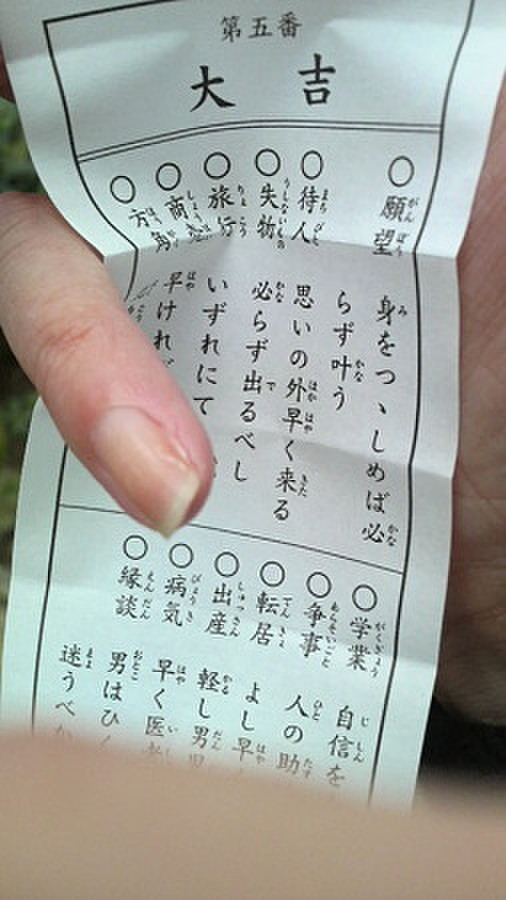 第五番
大吉
○願望 身をつゝしめば必
らず叶う
○待人 思いの外早く来る
○失物 必らず出るべし
○旅行 いずれにて
○商売 早けれ
○方角
○学業 自信を
○争事 人の助
○転居 よし早
○出産 軽し男
○病気 早く医
○縁談 男はひ
迷うべ